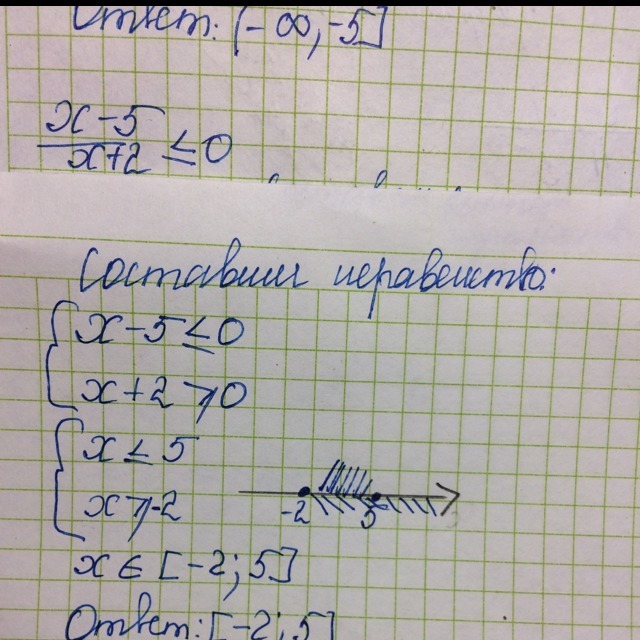 Ответ: [-∞, -5]
x-5
x+2 ≤0
Составим неравенство:
x-5≤0
x+2⩾0
x≤5
x⩾-2
-2 5
x∈[-2;5]
Ответ: [-2;5]